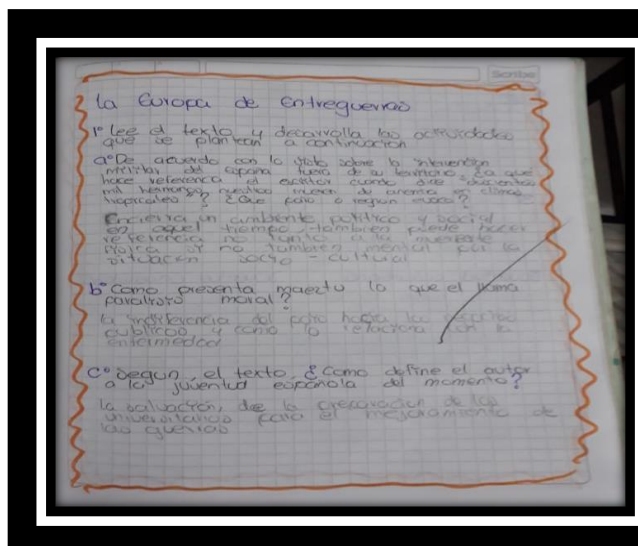 Scribe
La Europa de Entreguerras
1º Lee el texto y desarrolla las actividades
que se plantean a continuación
aº De acuerdo con lo visto sobre la intervención
militar del españa fuera de su territorio ¿a que
hace referencia el escritor cuando dice "doscientos
mil hermanos nuestros mueren de anemia en climas
tropicales"? ¿Que pais o region evoca?
Encierra un ambiente politico y social
en aquel tiempo, tambien puede hacer
referencia no tanto a la muerte
fisica si no tambien mental por la
situacion socio-cultural
bº Como presenta maeztu lo que el llama
paralisis moral?
la indiferencia del pais hacia los
publicos y como lo relaciona con la
enfermedad
cº Segun el texto, ¿Como define el autor
a la juventud española del momento?
la salvación, de la preparacion de los
universitarios para el mejoramiento de
las guerras